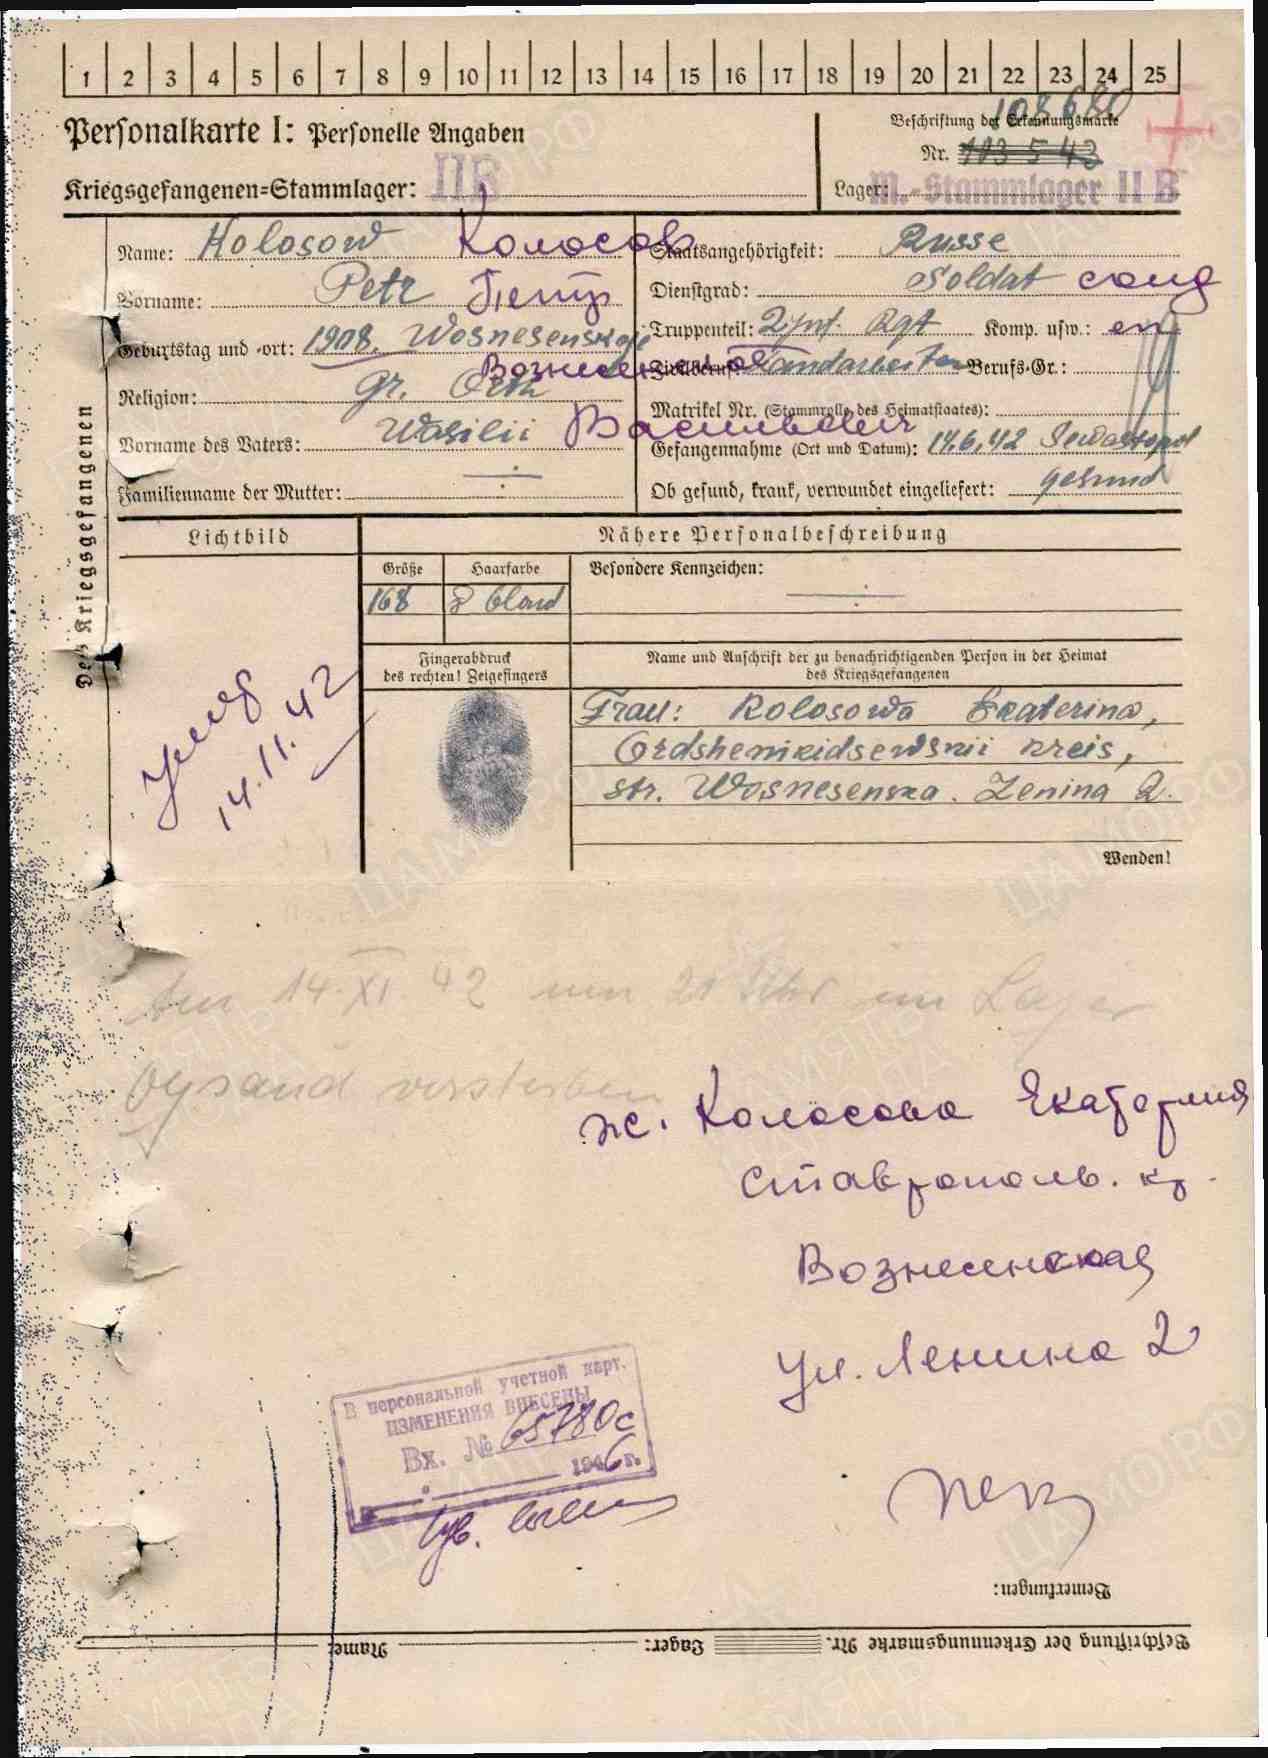 1 2 3 4 5 6 7 8 9 10 11 12 13 14 15 16 17 18 19 20 21 22 23 24 25
Personalkarte I: Personelle Angaben
Kriegsgefangenen-Stammlager: II B
Beschriftung der Erkennungsmarke
108680
Nr. 113543
Lager: M.-Stammlager II B
Des Kriegsgefangenen
Name: Kolosow Колосов
Vorname: Petr Петр
Geburtstag und -ort: 1908. Wosnesenskoje
Вознесенской
Religion: gr. Orth
Vorname des Vaters: Wasilii Васильевич
Familienname der Mutter:
Staatsangehörigkeit: Russe
Dienstgrad: Soldat солд
Truppenteil: 2 Inf. Rgt Komp. usw.:
Zivilberuf: Landarbeiter Berufs-Gr.:
Matrikel Nr. (Stammrolle des Heimatstaates):
Gefangennahme (Ort und Datum): 14.6.42 Sewastopol
Ob gesund, krank, verwundet eingeliefert: gesund
Lichtbild
Nähere Personalbeschreibung
Größe Haarfarbe Besondere Kennzeichen:
168 blond
Fingerabdruck
des rechten! Zeigefingers
Name und Anschrift der zu benachrichtigenden Person in der Heimat
des Kriegsgefangenen
Frau: Kolosowa Ekaterina,
Ordshenikidsewskii kreis,
str. Wosnesenska. Lenina 2.
Wenden!
умер
14.11.42
Am 14.XI.42 um 21 Uhr im Lager
verstorben
ж. Колосова Екатерина
Ставрополь. кр.
Вознесенская
ул. Ленина 2
В персональной учетной карт.
ИЗМЕНЕНИЯ ВНЕСЕНЫ
Вх. № 65780с
1946 г.
Bemerkungen:
Beschriftung der Erkennungsmarke Nr. Lager: Name: